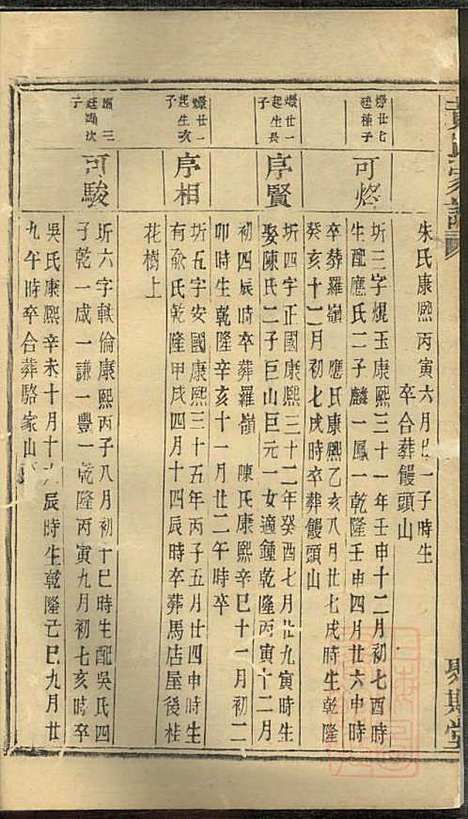 朱氏康熙丙寅六月廿一子時生
卒合葬饅頭山
可燈
圻三字焜玉康熙三十一年壬申十二月初七酉時
生配應氏二子麟一鳳一乾隆壬申四月廿六申時
卒葬羅嶺 應氏康熙乙亥八月廿七戌時生乾隆
癸亥十二月初七戌時卒葬饅頭山
起生長
子
序賢
圻四字正國康熙三十二年癸酉七月廿九寅時生
娶陳氏二子巨山巨元一女適鍾乾隆丙寅十二月
初四辰時卒葬羅嶺 陳氏康熙辛巳十一月初二
卯時生乾隆辛亥十一月廿二午時卒
起生亥
子
序相
圻五字安國康熙三十五年丙子五月廿四申時生
有俞氏乾隆甲戌四月十四辰時卒葬馬店屋後桂
花樹上
子
可駿
圻六字軼倫康熙丙子八月初十巳時生配吳氏四
子乾一咸一謙一豐一乾隆丙寅九月初七亥時卒
吳氏康熙辛未十月十六辰時生乾隆己巳九月廿
九午時卒合葬駱家山